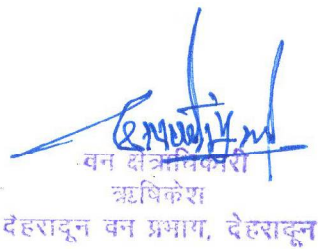 वन क्षेत्राधिकारी
ऋषिकेश
देहरादून वन प्रभाग, देहरादून